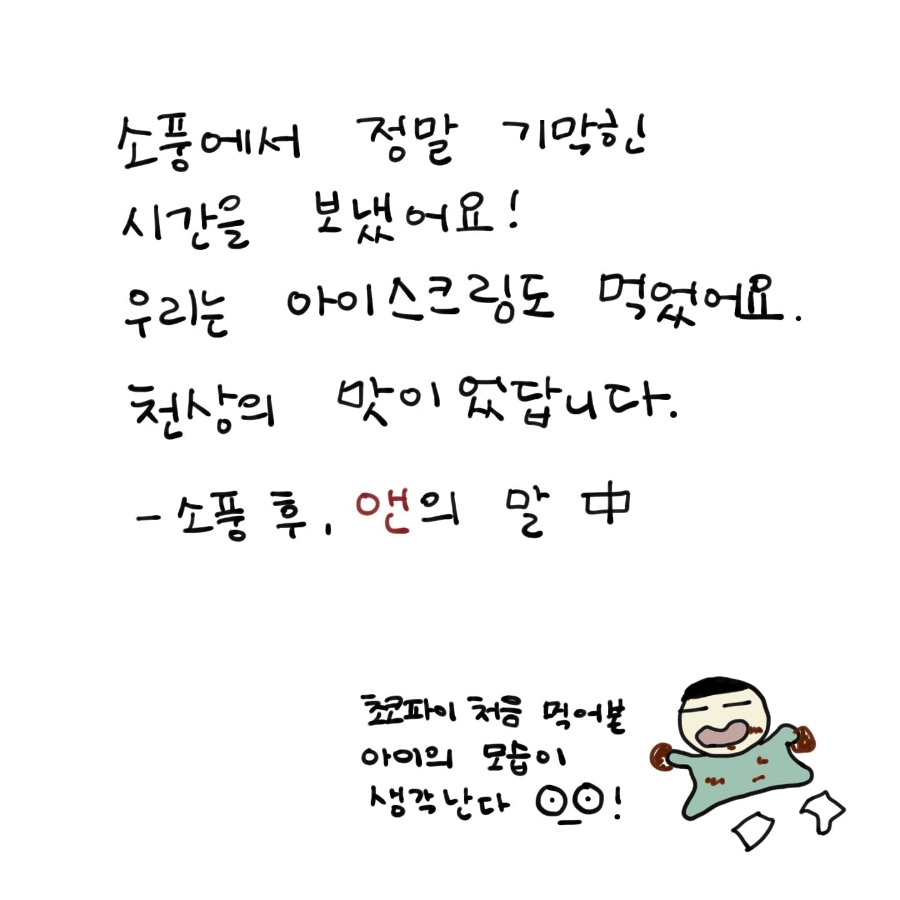 소풍에서 정말 기막힌
시간을 보냈어요!
우리는 아이스크림도 먹었어요.
천상의 맛이었답니다.
- 소풍 후, 앤의 말 中
쵸쿄파이 처음 먹어본
아이의 모습이
생각난다 ⊙_⊙!